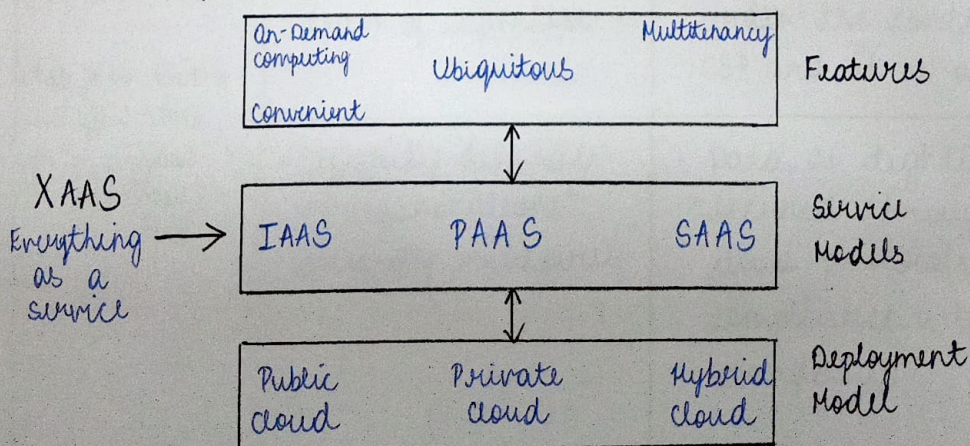 On-Demand
computing
Ubiquitous
Multitenancy
Convenient
Features
XAAS
Everything
as a
service
IAAS
PAAS
SAAS
Service
Models
Public
cloud
Private
cloud
Hybrid
cloud
Deployment
Model